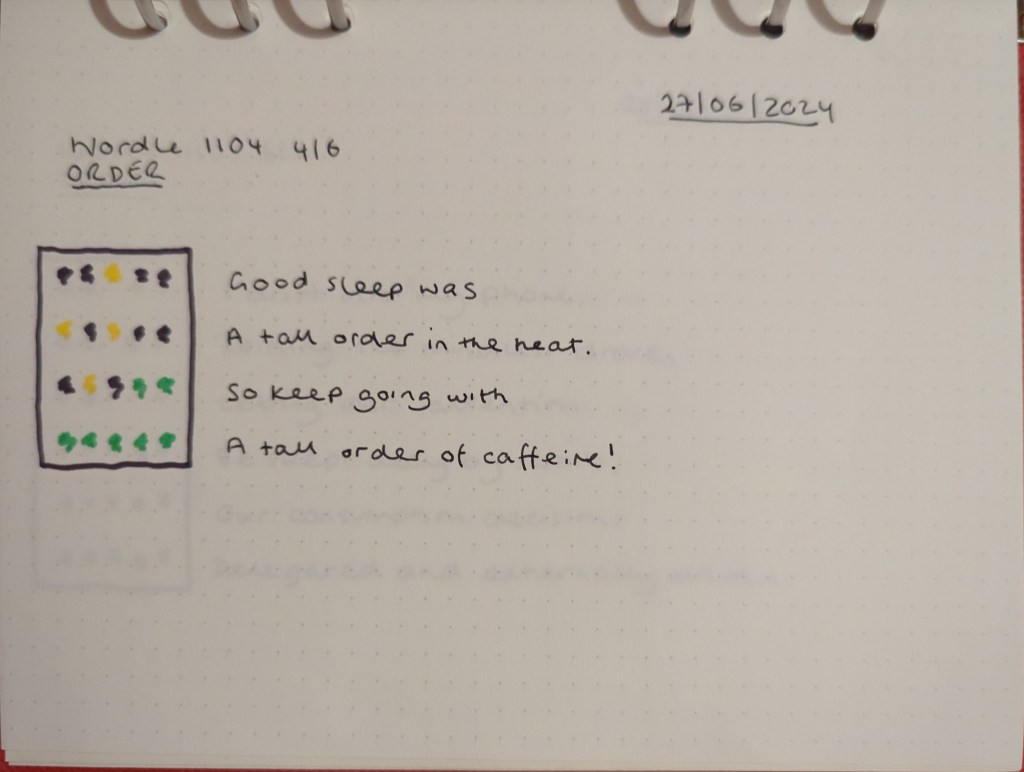 27/06/2024
Wordle 1104 4/6
ORDER
Good sleep was
A tall order in the heat.
So keep going with
A tall order of caffeine!